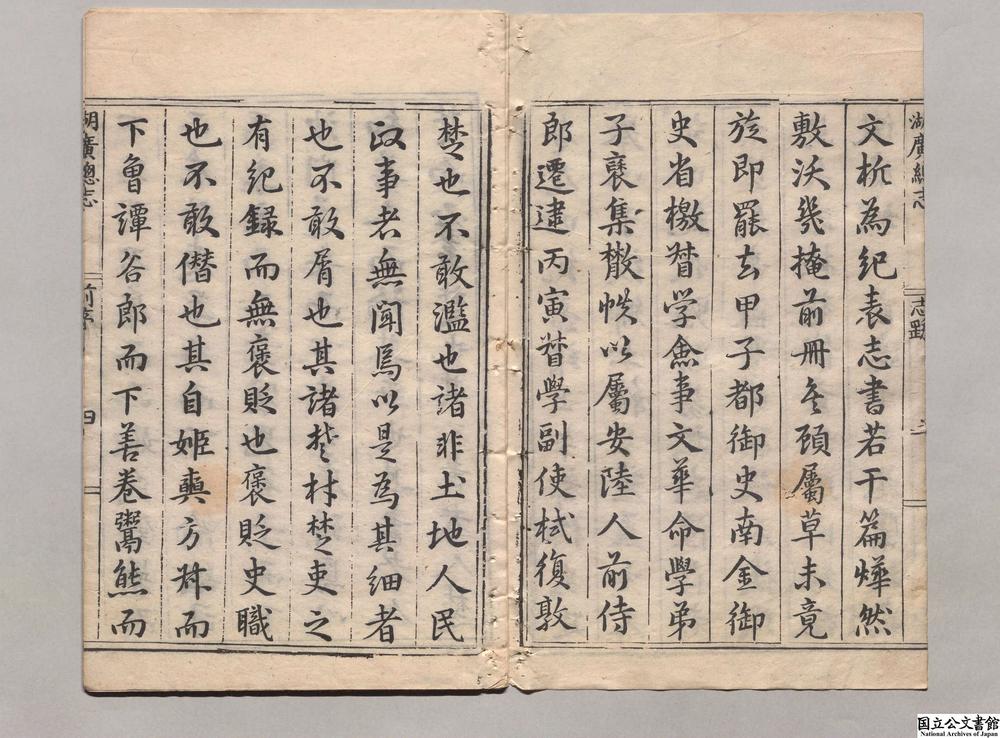 湖廣總志 志䟦
文析為紀表志書若干篇燁然
敷沃幾掩前冊矣顧屬草未竟
旋即罷去甲子都御史南金御
史省檄督學僉事文華命學弟
子裒集散帙以屬安陸人前侍
郎遷逮丙寅督學副使栻復敦
楚也不敢濫也諸非土地人民
政事者無聞焉以是為其細者
也不敢屑也其諸楚材楚吏之
有紀録而無褒貶也褒貶史職
也不敢僭也其自姬奭方叔而
下魯譚谷郎而下善卷鬻熊而
湖廣總志 前序 四
国立公文書館
National Archives of Japan